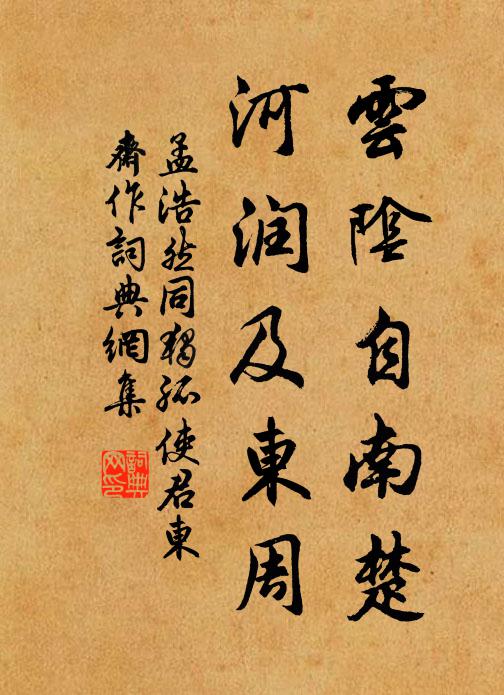 雲陰自南楚
河润及東周
孟浩然同獨孤使君東
齋作詞典網集
詞典
网印